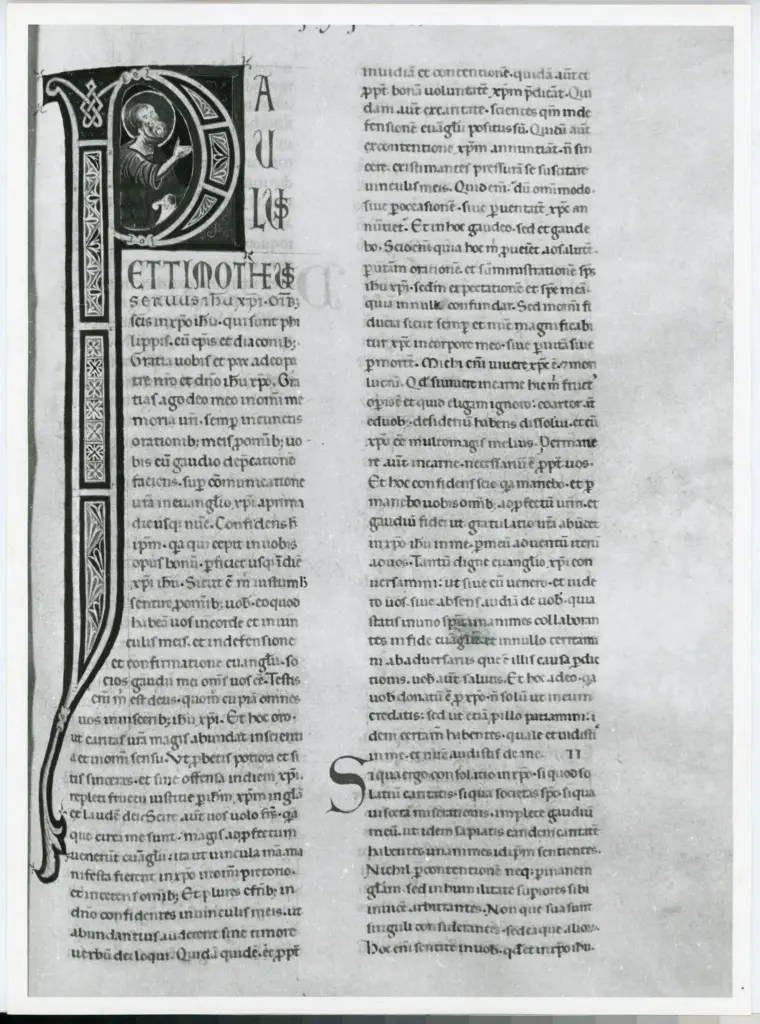 PAULUS
ET TIMOTHEUS
SERVUS ihu xpi. Omib;
scis in xpo ihu. qui sunt phi
lippis. cū epis et diaconib;
Gratia uobis et pax a deo pa
tre nro et dno ihu xpo. Gra
tias ago deo meo in omi me
moria uri. semp in cunctis
orationib; meis. p omib; uo
bis cū gaudio depcatione
faciens. sup cōmunicatione
ura in euanglio xpi. a prima
die usq; nūc. Confidens h
ipm. qa qui cepit in uobis
opus bonū. pficiet usq; ī diē
xpi ihu. Sicut ē m iustum h
sentire p omib; uob. eo quod
habeā uos in corde et in uin
culis meis. et in defensione
et confirmatione euanglii. so
cios gaudii mei oms uos ēē. Testis
eni m est deus. quom cupiā omnes
uos in uiscerib; ihu xpi. Et hoc oro.
ut caritas ura magis abundat in scienti
a et in omi sensu. Vt pbetis potiora et si
tis sinceras. et sine offensa in diem xpi.
repleti fructu iustitie p ihm xpm in glā
et laudē dei. Scire aut uos uolo frs. qa
que circa me sunt. magis ad pfectum
uenerūt euāglii: ita ut uincula mea ma
nifesta fierent in xpo in omi pretorio.
et in ceteris omib; Et plures e frib; in
dno confidentes in uinculis meis. ut
abundantius auderent sine timore
uerbū dei loqui. Quidā quidē. et ppt
inuidiā et contentionē. quidā aūt et
ppt bonā uoluntatē xpm pdicāt. Qui
dam aūt ex caritate. scientes qm in de
fensionē euāglii positus sū. Quidā aūt
ex contentione xpm annuntiāt. n sin
cere. existimantes pressurā se suscitare
uinculis meis. Quid eni. dū omi modo.
siue p occasionē. siue p ueritatē xpc an
nūtiet. Et in hoc gaudeo. sed et gaude
bo. Scio eni quia hoc m pueiet ad salutē.
p urām orationē. et sūministrationē sps
ihu xpi. sedm expectationē et spē meā.
quia in nullo confundar. Sed in omi fi
ducia sicut semp et nūc magnificabi
tur xpc in corpore meo. siue p uitā siue
p mortē. Michi eni uiuere xpc ē. et mori
lucrū. Qd si uiuere in carne hic m fruct
opis ē et quid eligam ignoro: coartor aūt
e duob; desideriū habens dissolui. et cū
xpo ēē multo magis melius. Permane
re aūt in carne. necessariū ē ppt uos.
Et hoc confidens scio qa manebo. et p
manebo uobis omib; ad pfectū urm. et
gaudiū fidei ut gratulatio ura abūdet
in xpo ihu in me. p meū aduentū iterū
ad uos. Tantū digne euanglio xpi con
uersamini: ut siue cū uenero. et uide
ro uos. siue absens audiā de uob. quia
statis in uno spu unanimes collaboran
tes in fide euāglii. et in nullo terreami
ni ab aduersariis que ē illis causa pdic
tionis. uob aūt salutis. Et hoc a deo. qa
uob donatū ē p xpo. n solū ut in eum
credatis: sed ut etiā p illo patiamini: i
dem certam habentes. quale et uidisti
in me. et nūc audistis de me. II
Si qua ergo consolatio in xpo. si quod so
latiū caritatis. si qua societas sps. si qua
uiscera miserationis. implete gaudiū
meū. ut idem sapiatis eandem caritatē
habentes unanimes id ipm sentientes.
Nichil p contentionē neq; p inanem
glam. sed in humilitate supiores sibi
inuicē arbitrantes. Non que sua sunt
singuli considerantes. sed ea que alioz.
Hoc eni sentite in uob. qd et in xpo ihu.